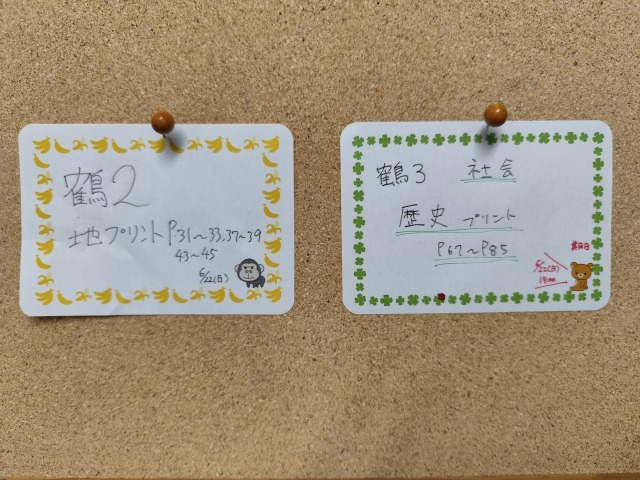 鶴2
地プリント P31〜33,37〜39
43〜45
6/22(日)
鶴3 社会
歴史 プリント
P67〜P85
6/22(日)